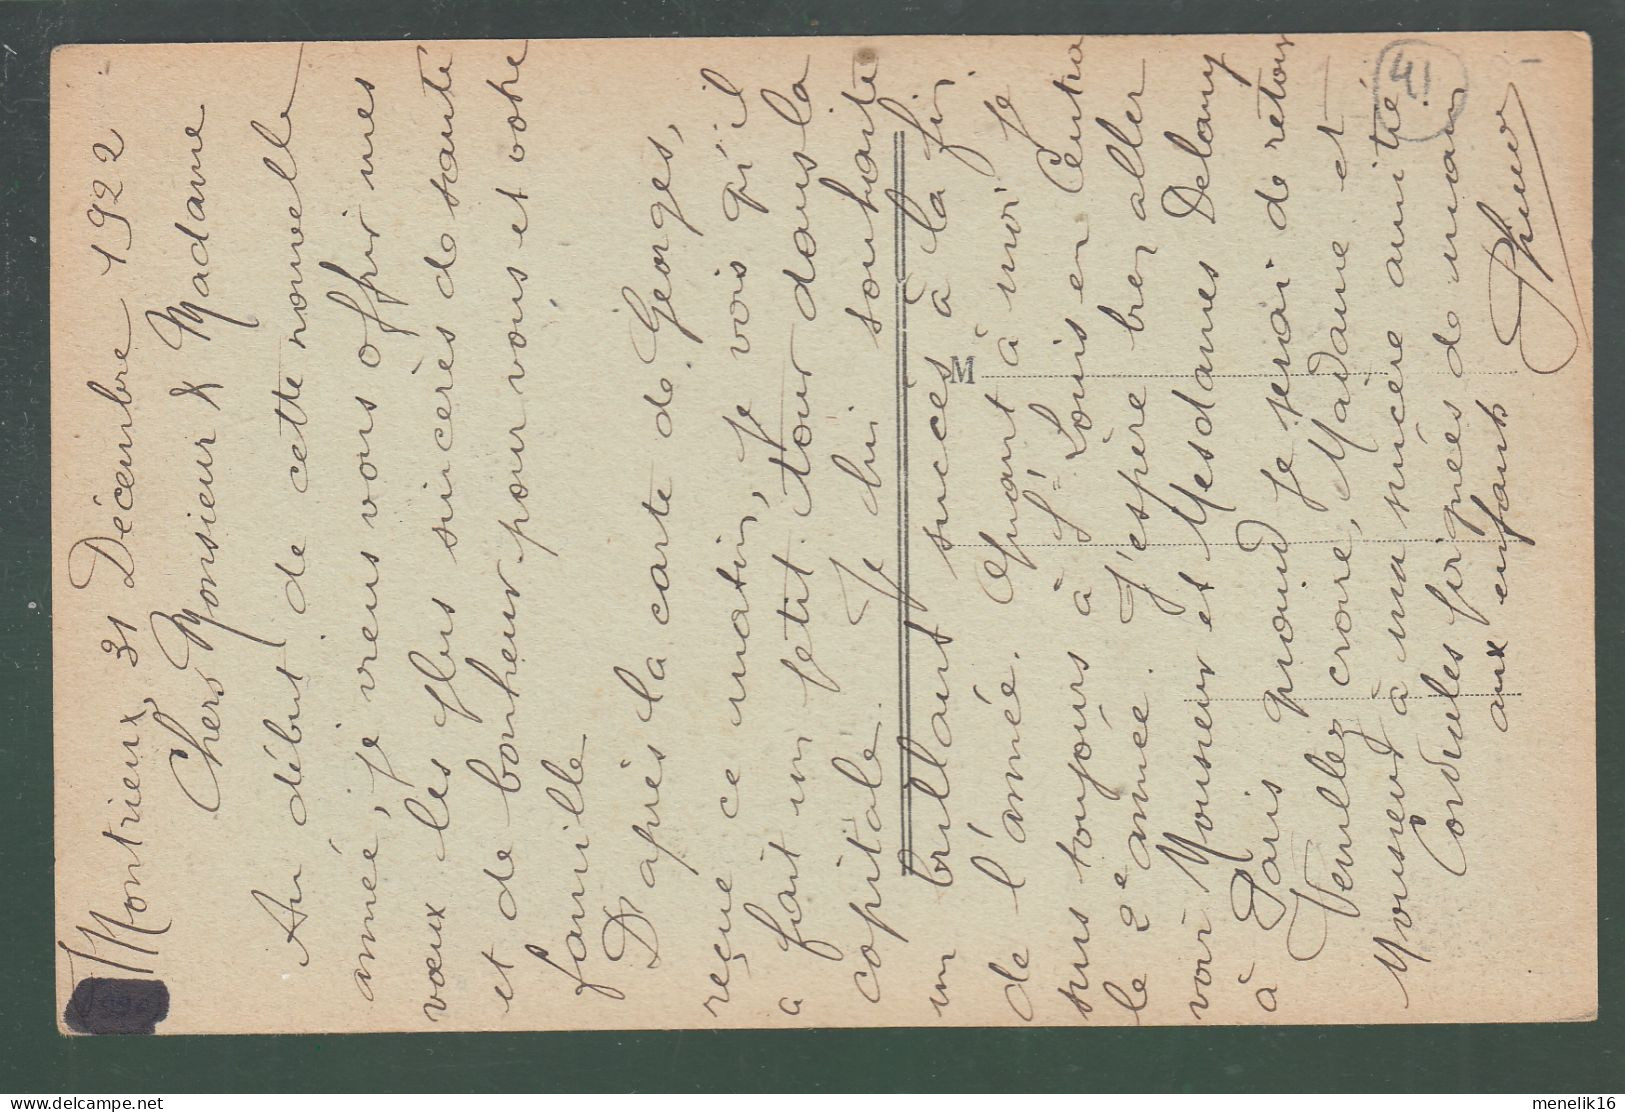 Montrieux, 31 Décembre 1922
Chers Monsieur & Madame
Au début de cette nouvelle
année, je viens vous offrir mes
vœux les plus sincères de santé
et de bonheur pour vous et votre
famille
D'après la carte de Georges,
reçue ce matin, je vois qu'il
a fait un petit tour dans la
capitale. Je lui souhaite
un brillant succès à la fin
de l'année. Quant à moi je
suis toujours à St Louis en Centra
le 2e année. J'espère bien aller
voir Monsieur et Mesdames Delauy
à Paris quand je serai de retour
Veuillez croire, Madame et
Monsieur à ma sincère amitié
Cordiales poignées de main
aux enfants
M
41
menelik16